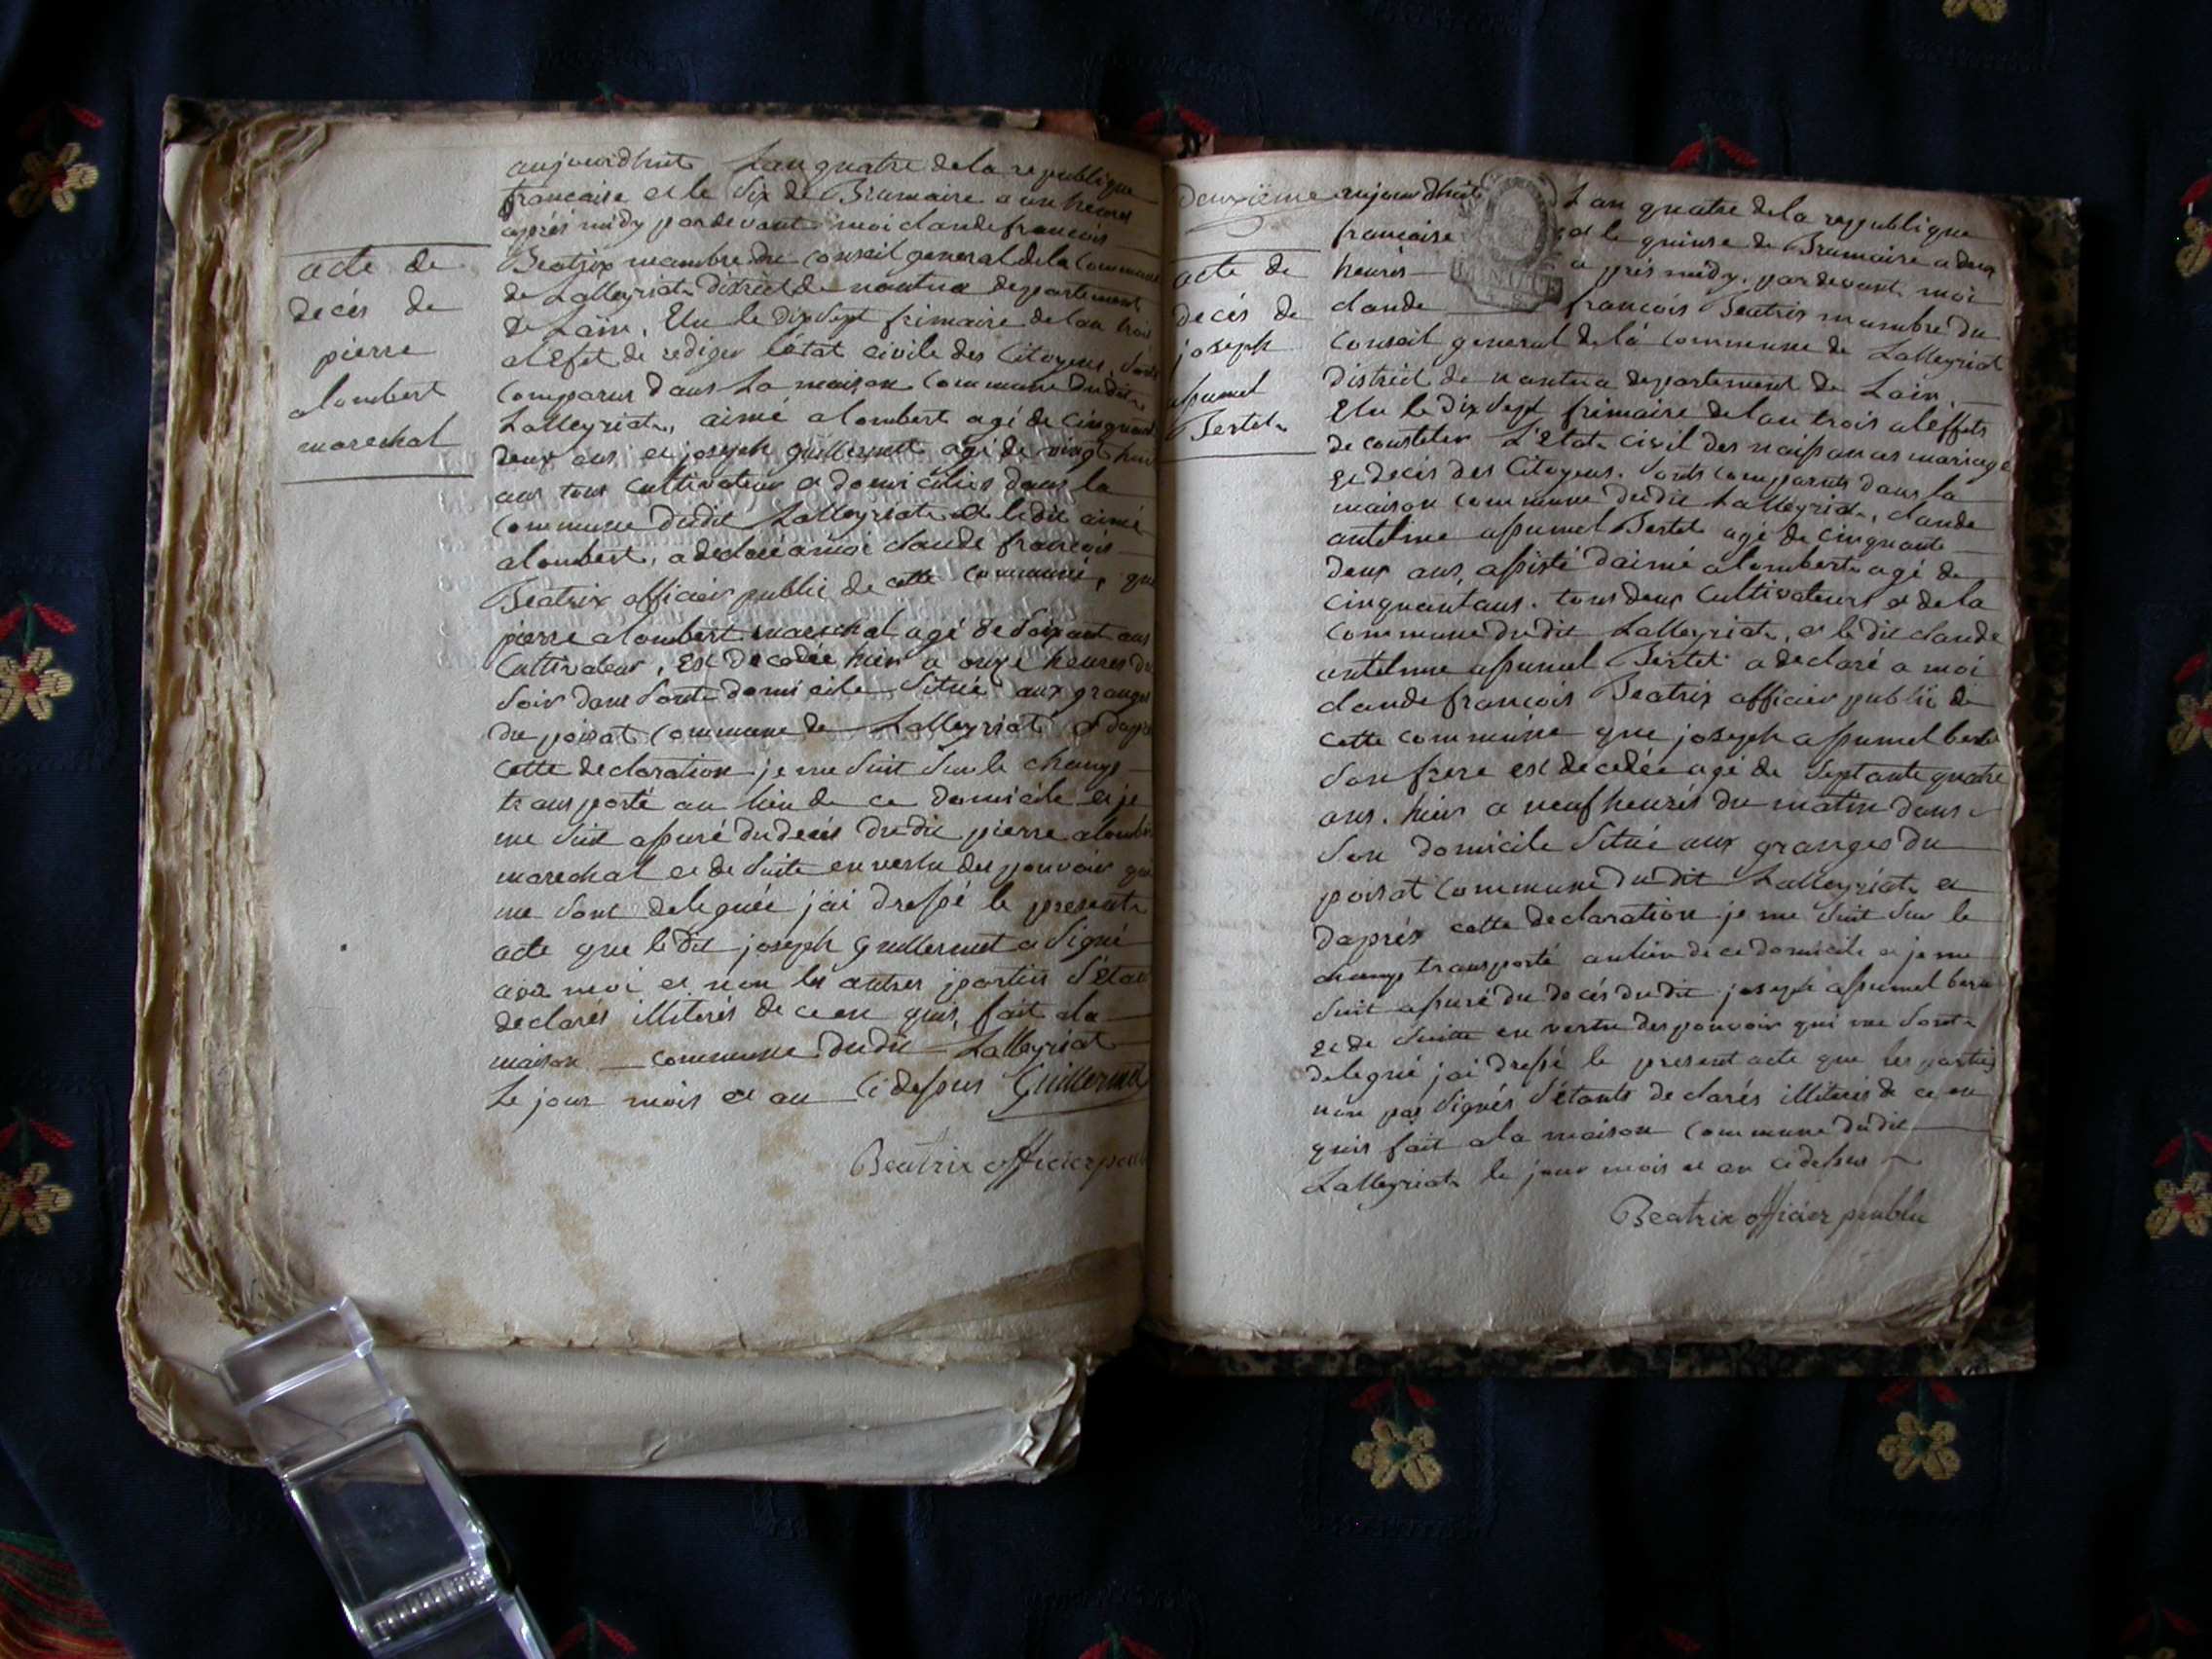 acte de
decés de
pierre
alombert
marechal
aujourdhuit Lan quatre de la republique
francaise et le six de Brumaire a un heures
aprés midy pardevant moi claude francois
Beatrix mambre du conseil general de la commune
de Lalleyriat district de nantua departement
de Lain, Elu le dix sept frimaire de lan trois
al Efet de rediger l'état civile des Citoyens, sont
comparus dans La maison commune dudit
Lalleyriat, aimé alombert agé de cinquant
deux ans et joseph guillermet agé de vingt huit
ans tous cultivateur et domiciliés dans la
commune dudit Lalleyriat et le dit aimé
alombert, a declaré a moi claude francois
Beatrix officier public de cette commune, que
pierre alombert marechal agé de soixant ans
Cultivateur, Est decedée hier a onze heures du
soir dans sont domicile situé aux granges
du poizat commune de Lalleyriat et dapré
cette declaration je me suit sur le champ
transporté au lieu de ce domicile et je
me suit assuré du decés du dit pierre alombert
marechal et de suite en vertu des pouvoir qui
me sont deleguée jai dressé le presente
acte que le dit joseph guillermet a signé
avec moi et non les autres parties s'étant
declarés illiterés de ce en quis, fait a la
maison commune dudit Lalleyriat
Le jour mois et an Ci dessus Guillermet
Beatrix officier pub
Deuxième
acte de
decés de
joseph
assumel
Bertet
aujourdhuit Lan quatre de la republique
francaise et le quinse de Brumaire a deux
heures a prés midy, pardevant moi
claude francois Beatrix mambre du
conseil general de la commune de Lalleyriat
district de nantua departement de Lain,
Elu le dix sept frimaire de lan trois al effets
de consteter L'état civil des naissances mariage
et decés des Citoyens. sonts comparuts dans la
maison commune dudit Lalleyriat, claude
antelme assumel Bertet agé de cinquante
deux ans, assisté daimé alombert agé de
cinquant ans. tous deux Cultivateurs et de la
commune du dit Lalleyriat, et le dit claude
antelme assumel Bertet a declaré a moi
claude francois Beatrix officier public de
cette commune que joseph assumel berte
son frere est decedée agé de septante quatre
ans. hier a neuf heurés du matin dans
son domicile situé aux granges du
poizat commune du dit Lalleyriat et
daprés cette declaration je me suit sur le
champ transporté au lieu de ce domicile et je me
suit assuré du decés du dit joseph assumel berte
et de suitte en vertu des pouvoir qui me sont
delegué jai dressé le present acte que les parties
non pas signés s'étants declarés illiterés de ce en
quis fait a la maison commune du dit
Lalleyriat le jour mois et an ci dessus
Beatrix officier peublic